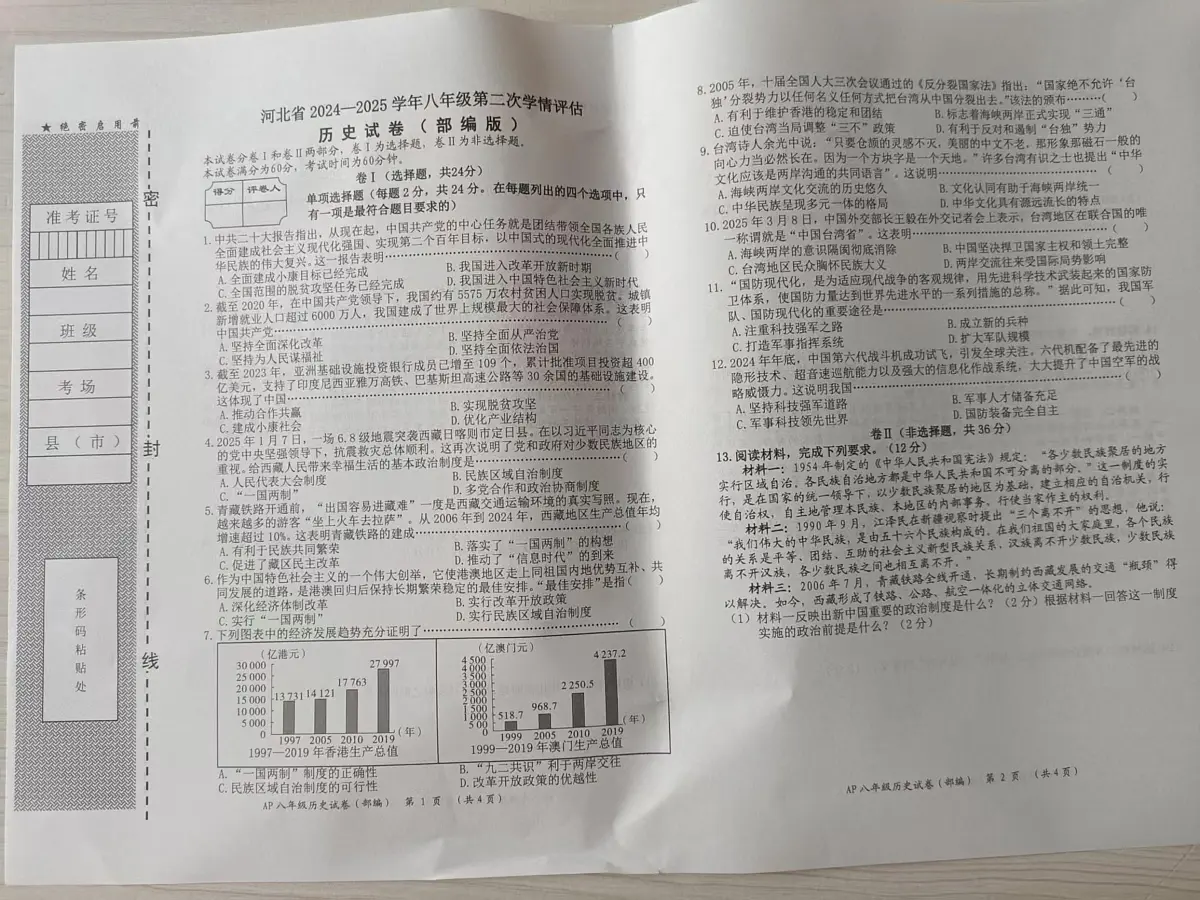 ★ 绝密启用前
准考证号
姓名
班级
考场
县（市）
条形码粘贴处
密
封
线
河北省 2024—2025 学年八年级第二次学情评估
历史试卷（部编版）
本试卷分卷Ⅰ和卷Ⅱ两部分，卷Ⅰ为选择题，卷Ⅱ为非选择题。
本试卷满分为60分，考试时间为60分钟。
卷Ⅰ（选择题，共24分）
得分 评卷人
单项选择题（每题2分，共24分。在每题列出的四个选项中，只
有一项是最符合题目要求的）
1. 中共二十大报告指出，从现在起，中国共产党的中心任务就是团结带领全国各族人民
全面建成社会主义现代化强国、实现第二个百年目标，以中国式的现代化全面推进中
华民族的伟大复兴。这一报告表明……（ ）
A. 全面建成小康目标已经完成 B. 我国进入改革开放新时期
C. 全国范围的脱贫攻坚任务已经完成 D. 我国进入中国特色社会主义新时代
2. 截至2020年，在中国共产党领导下，我国约有5575万农村贫困人口实现脱贫。城镇
新增就业人口超过6000万人，我国建成了世界上规模最大的社会保障体系。这表明
中国共产党……（ ）
A. 坚持全面深化改革 B. 坚持全面从严治党
C. 坚持为人民谋福祉 D. 坚持全面依法治国
3. 截至2023年，亚洲基础设施投资银行成员已增至109个，累计批准项目投资超400
亿美元，支持了印度尼西亚雅万高铁、巴基斯坦高速公路等30余国的基础设施建设。
这体现了中国……（ ）
A. 推动合作共赢 B. 实现脱贫攻坚
C. 建成小康社会 D. 优化产业结构
4. 2025年1月7日，一场6.8级地震突袭西藏日喀则市定日县。在以习近平同志为核心
的党中央坚强领导下，抗震救灾总体顺利。这再次说明了党和政府对少数民族地区的
重视。给西藏人民带来幸福生活的基本政治制度是……（ ）
A. 人民代表大会制度 B. 民族区域自治制度
C. “一国两制” D. 多党合作和政治协商制度
5. 青藏铁路开通前，“出国容易进藏难”一度是西藏交通运输环境的真实写照。现在，
越来越多的游客“坐上火车去拉萨”。从2006年到2024年，西藏地区生产总值年均
增速超过10%。这表明青藏铁路的建成……（ ）
A. 有利于民族共同繁荣 B. 落实了“一国两制”的构想
C. 促进了藏区民主改革 D. 推动了“信息时代”的到来
6. 作为中国特色社会主义的一个伟大创举，它使港澳地区走上同祖国内地优势互补、共
同发展的道路，是港澳回归后保持长期繁荣稳定的最佳安排。“最佳安排”是指（ ）
A. 深化经济体制改革 B. 实行改革开放政策
C. 实行“一国两制” D. 实行民族区域自治制度
7. 下列图表中的经济发展趋势充分证明了……（ ）
（亿港元）
30 000
25 000
20 000
15 000
10 000
5 000
0
13 731 14 121 17 763 27 997
1997 2005 2010 2019（年）
1997—2019 年香港生产总值
（亿澳门元）
4 500
4 000
3 500
3 000
2 500
2 000
1 500
1 000
500
0
518.7 968.7 2 250.5 4 237.2
1999 2005 2010 2019（年）
1999—2019 年澳门生产总值
A. “一国两制”制度的正确性 B. “九二共识”利于两岸交往
C. 民族区域自治制度的可行性 D. 改革开放政策的优越性
AP 八年级历史试卷（部编） 第 1 页 （共4页）
8. 2005年，十届全国人大三次会议通过的《反分裂国家法》指出：“国家绝不允许‘台
独’分裂势力以任何名义任何方式把台湾从中国分裂出去。”该法的颁布……（ ）
A. 有利于维护香港的稳定和团结 B. 标志着海峡两岸正式实现“三通”
C. 迫使台湾当局调整“三不”政策 D. 有利于反对和遏制“台独”势力
9. 台湾诗人余光中说：“只要仓颉的灵感不灭，美丽的中文不老，那形象那磁石一般的
向心力当必然长在。因为一个方块字是一个天地。”许多台湾有识之士也提出“中华
文化应该是两岸沟通的共同语言”。这说明……（ ）
A. 海峡两岸文化交流的历史悠久 B. 文化认同有助于海峡两岸统一
C. 中华民族呈现多元一体的格局 D. 中华文化具有源远流长的特点
10. 2025年3月8日，中国外交部长王毅在外交记者会上表示，台湾地区在联合国的唯
一称谓就是“中国台湾省”。这表明……（ ）
A. 海峡两岸的意识隔阂彻底消除 B. 中国坚决捍卫国家主权和领土完整
C. 台湾地区民众胸怀民族大义 D. 两岸交流往来受国际局势影响
11. “国防现代化，是为适应现代战争的客观规律，用先进科学技术武装起来的国家防
卫体系，使国防力量达到世界先进水平的一系列措施的总称。”据此可知，我国军
队、国防现代化的重要途径是……（ ）
A. 注重科技强军之路 B. 成立新的兵种
C. 打造军事指挥系统 D. 扩大军队规模
12. 2024年年底，中国第六代战斗机成功试飞，引发全球关注。六代机配备了最先进的
隐形技术、超音速巡航能力以及强大的信息化作战系统，大大提升了中国空军的战
略威慑力。这说明我国……（ ）
A. 坚持科技强军道路 B. 军事人才储备充足
C. 军事科技领先世界 D. 国防装备完全自主
卷Ⅱ（非选择题，共36分）
13. 阅读材料，完成下列要求。（12分）
材料一：1954年制定的《中华人民共和国宪法》规定：“各少数民族聚居的地方
实行区域自治。各民族自治地方都是中华人民共和国不可分离的部分。”这一制度的实
行，是在国家的统一领导下，以少数民族聚居的地区为基础，建立相应的自治机关，行
使自治权，自主地管理本民族、本地区的内部事务，行使当家作主的权利。
材料二：1990年9月，江泽民在新疆视察时提出“三个离不开”的思想，他说：
“我们伟大的中华民族，是由五十六个民族构成的。在我们祖国的大家庭里，各个民族
的关系是平等、团结、互助的社会主义新型民族关系，汉族离不开少数民族，少数民族
离不开汉族，各少数民族之间也相互离不开。”
材料三：2006年7月，青藏铁路全线开通，长期制约西藏发展的交通“瓶颈”得
以解决。如今，西藏形成了铁路、公路、航空一体化的立体交通网络。
（1）材料一反映出新中国重要的政治制度是什么？（2分）根据材料一回答这一制度
实施的政治前提是什么？（2分）
AP 八年级历史试卷（部编） 第 2 页 （共4页）